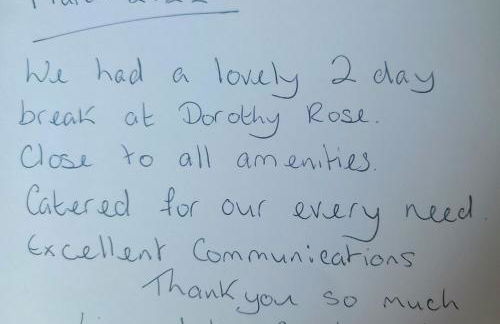 We had a lovely 2 day
break at Dorothy Rose.
Close to all amenities.
Catered for our every need.
Excellent Communications
Thank you so much